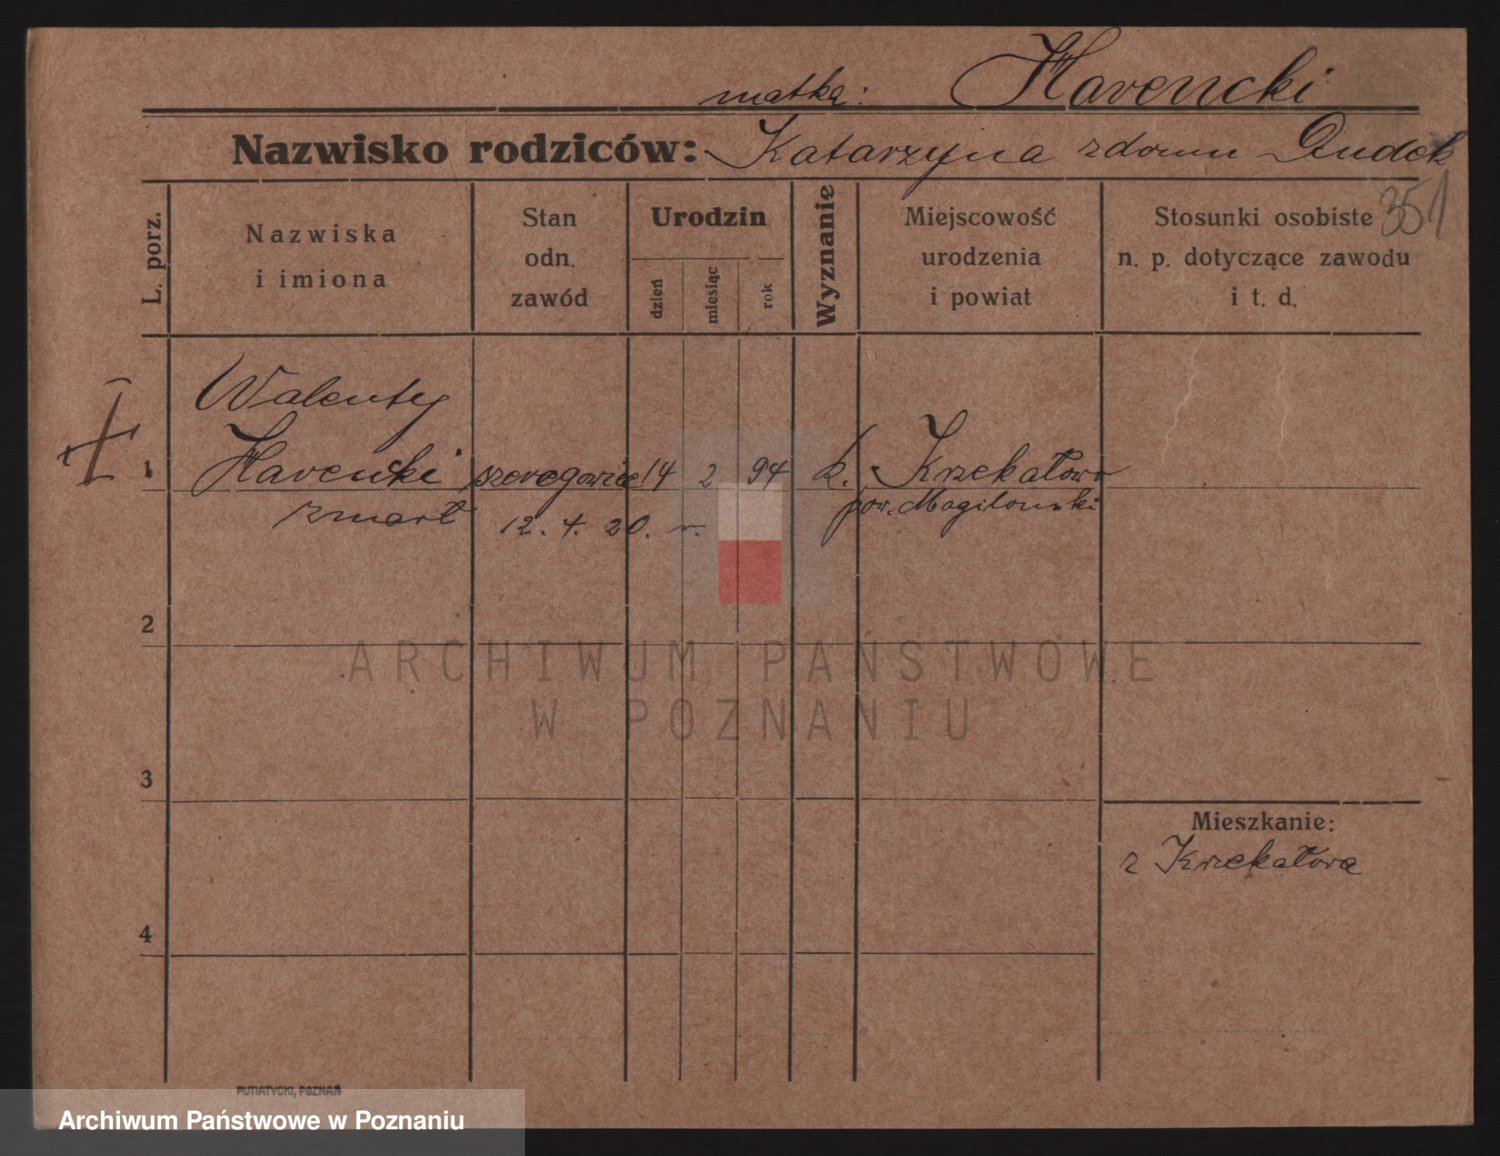 Havencki
matka:
Nazwisko rodziców: Katarzyna zdomu Dudek
351
L. porz.
Nazwiska
i imiona
Stan
odn.
zawód
Urodzin
dzień
miesiąc
rok
Wyznanie
Miejscowość
urodzenia
i powiat
Stosunki osobiste
n. p. dotyczące zawodu
i t. d.
Walenty
1 Havencki szeregowiec 14 2 94 k. Krzekotowo
pow. Mogilnowski
zmarł 12. 4. 20. r.
2
3
4
Mieszkanie:
z Krzekotowa
ARCHIWUM PAŃSTWOWE
W POZNANIU
PUTIATYCKI, POZNAŃ
Archiwum Państwowe w Poznaniu